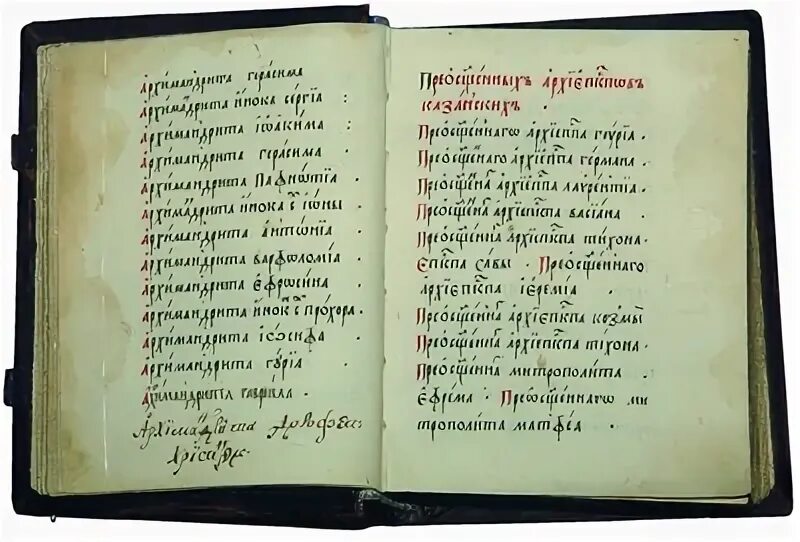 Архимандрита герасима
Архимандрита инока сергїа :
Архимандрита їѡакима :
Архимандрита герасима
Архимандрита Пафнѹтїа
Архимадрита инока с їѡны
Архимандрита антѡнїа
Архимандрита варфоломїа
Архимандрита Ефросина
Архимандрита инок с прохора
Архимандрита їѡсифа
Архимандрита гѹрїа
Архимандрита гаврїила
Архимандрита
Преѡсщенныхъ архїепкпѡвъ
казанскихъ
Преѡсщеннагѡ архїепкпа гѹрїа
Преѡсщенаго архїепкпа германа
Преѡсщена архїепкпа лаѵрентїа
Преѡсщена архїепкпа васїана
Преѡсщенна архїепкпа тихона
Епкпа савы Преѡсщеннаго
архїепкпа їеремїа
Преѡсщенна архїепкпа козмы
Преѡсщенна архїепкпа тихона
Преѡсщенна митрополита
Ефрема Преѡсщеннагѡ ми
трополита матфеа